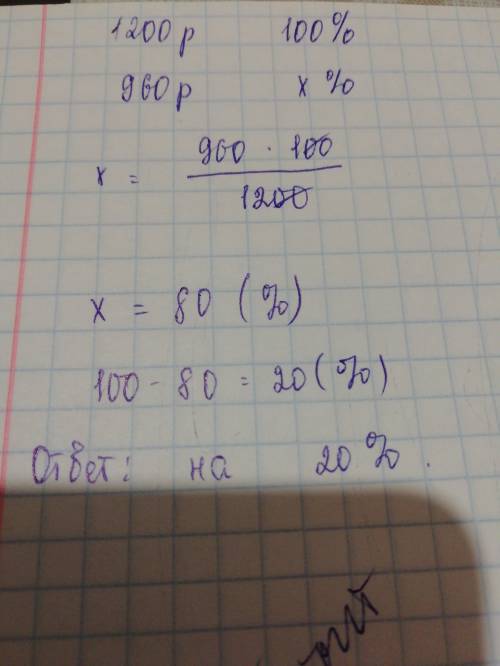 1200 р 100%
960 р x %
x = 960 · 100 / 1200
x = 80 (%)
100 - 80 = 20 (%)
Ответ: на 20%.